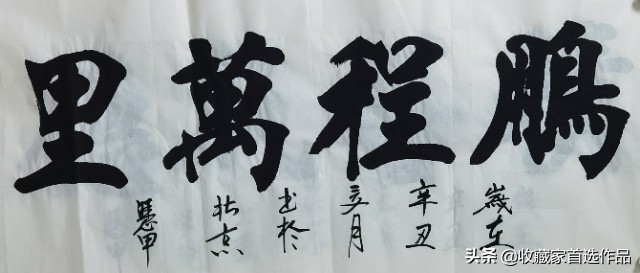 鵬程萬里
歲在
辛丑
月
书於
北京
头条 @收藏家首选作品